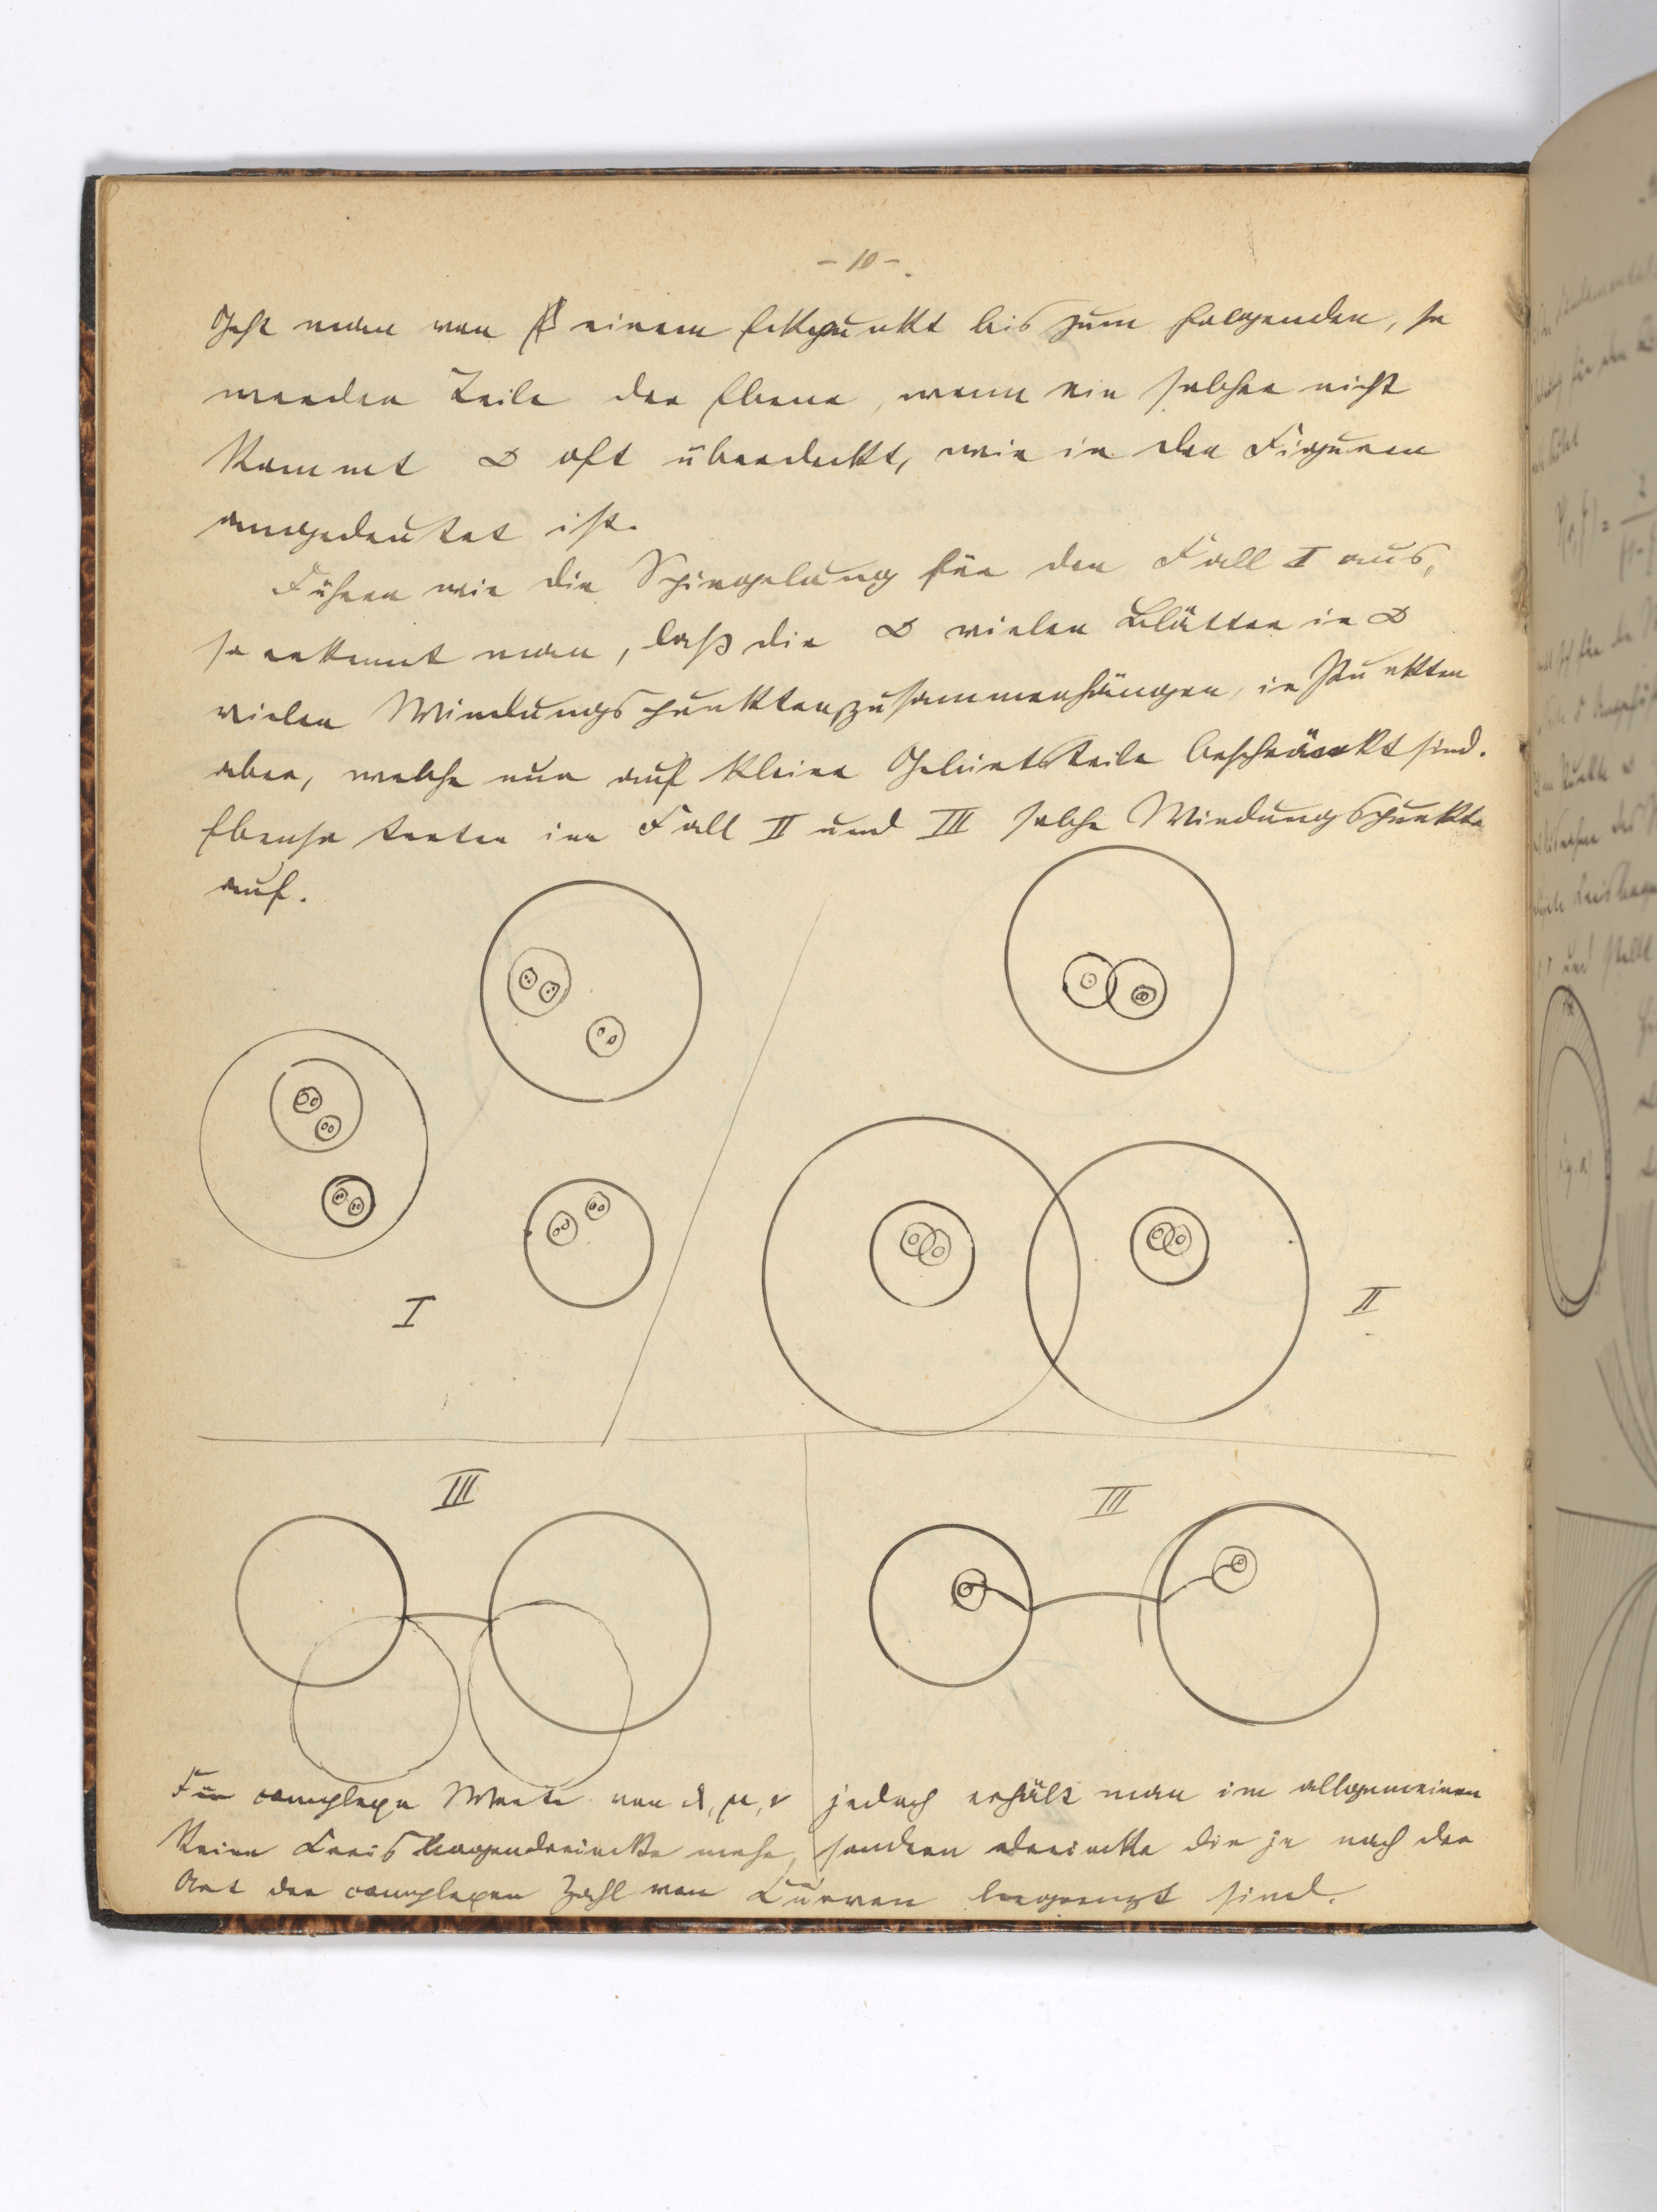 - 10 -.
Geht man von einem Eckpunkt bis zum folgenden, so
werden Teile der Ebene, wenn ein solcher nicht
kommt ∞ oft überdeckt, wie in den Figuren
angedeutet ist.
Führen wir die Spiegelung für den Fall I aus,
so erkennt man, daß die ∞ vielen Blätter in ∞
vielen Windungspunkten zusammenhängen, in Punkten
aber, welche nur auf kleine Gebietsteile beschränkt sind.
Ebenso treten im Fall II und III solche Windungspunkte
auf.
I
II
III
III
Für complexe Werte von λ, μ, ν jedoch erhält man im allgemeinen
keine Kreisbogendreiecke mehr, sondern Dreiecke die je nach der
Art der complexen Zahl von Kurven begrenzt sind.